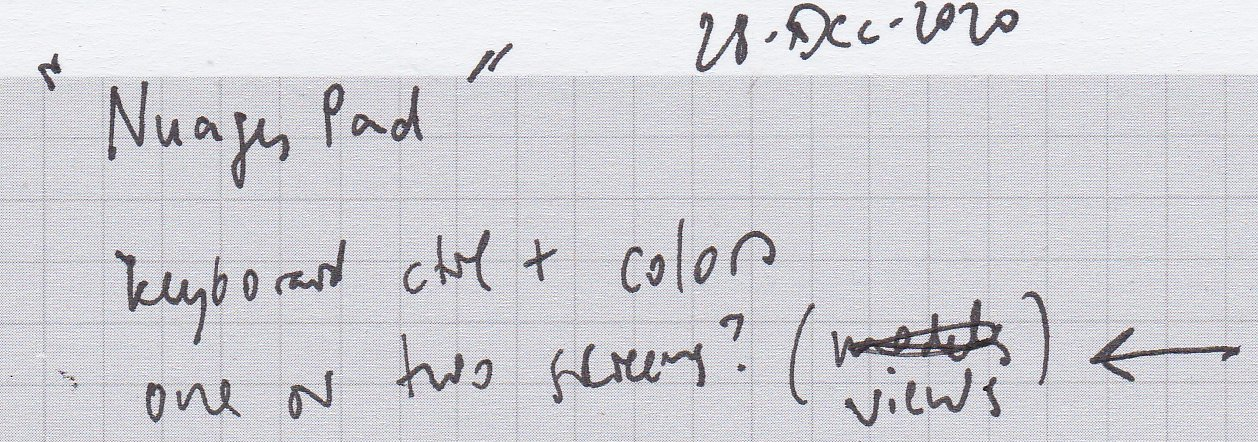 28-Dec-2020
"Nuages Pad"
keyboard ctrl + colors
one or two screens? (models) ←
views